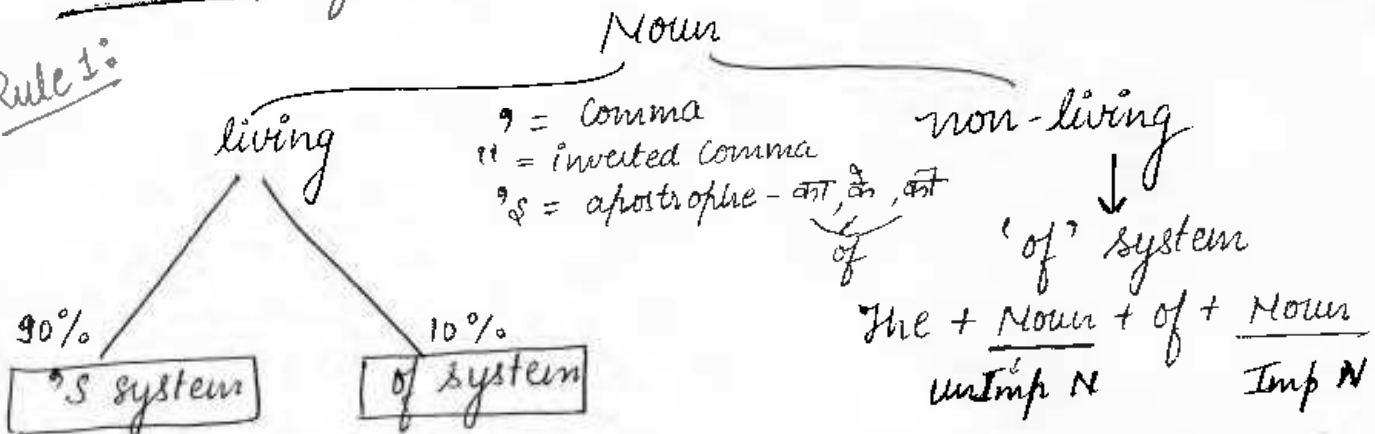 Noun
Rule 1:
living
, = Comma
" = inverted Comma
's = apostrophe - का, के, की
of
non-living
'of' system
The + Noun + of + Noun
unImp N Imp N
90% 10%
's system of system